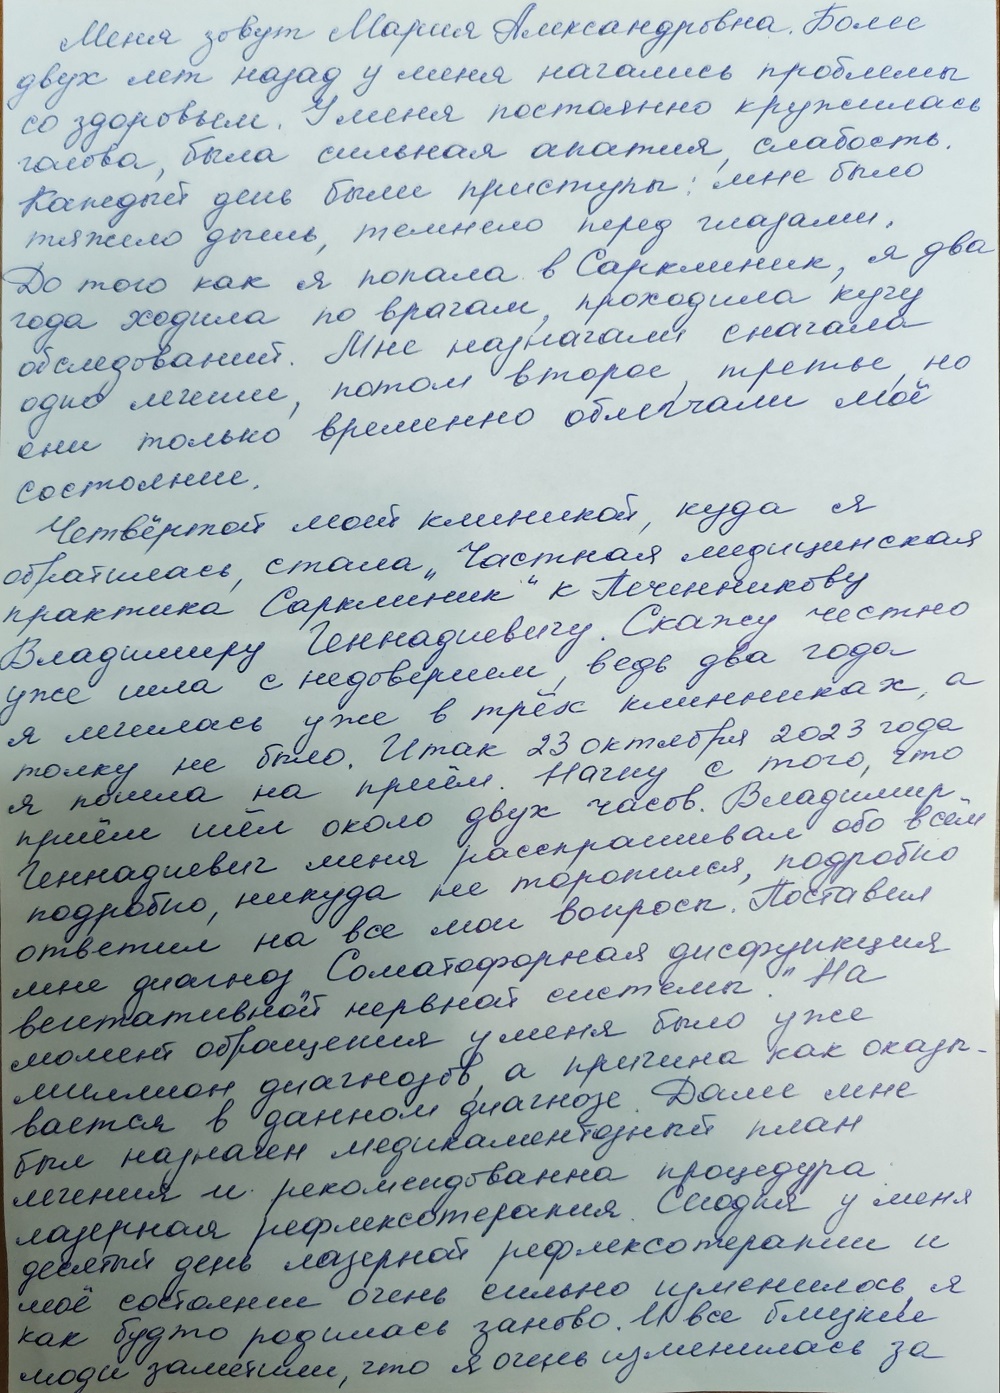 Меня зовут Мария Александровна. Более
двух лет назад у меня начались проблемы
со здоровьем. У меня постоянно кружилась
голова, была сильная апатия, слабость.
Каждый день были приступы: мне было
тяжело дышать, темнело перед глазами.
До того как я попала в Сарклиник, я два
года ходила по врачам, проходила кучу
обследований. Мне назначали сначала
одно лечение, потом второе, третье, но
они только временно облегчали моё
состояние.
Четвёртой моей клиникой, куда я
обратилась, стала „Частная медицинская
практика Сарклиник" к Печенникову
Владимиру Геннадиевичу. Скажу честно
уже шла с недоверием, ведь два года
я лечилась уже в трёх клинниках, а
толку не было. Итак 23 октября 2023 года
я пошла на приём. Начну с того, что
приём шёл около двух часов. Владимир
Геннадиевич меня расспрашивал обо всём
подробно, никуда не торопился, подробно
ответил на все мои вопросы. Поставил
мне диагноз „Соматоформная дисфункция
вегетативной нервной системы." На
момент обращения у меня было уже
миллион диагнозов, а причина как оказы-
вается в данном диагнозе. Далее мне
был назначен медикаментозный план
лечения и рекомендованна процедура
лазерная рефлексотерапия. Сегодня у меня
десятый день лазерной рефлексотерапии и
моё состояние очень сильно изменилось, я
как будто родилась заново. И все близкие
люди заметили, что я очень изменилась за